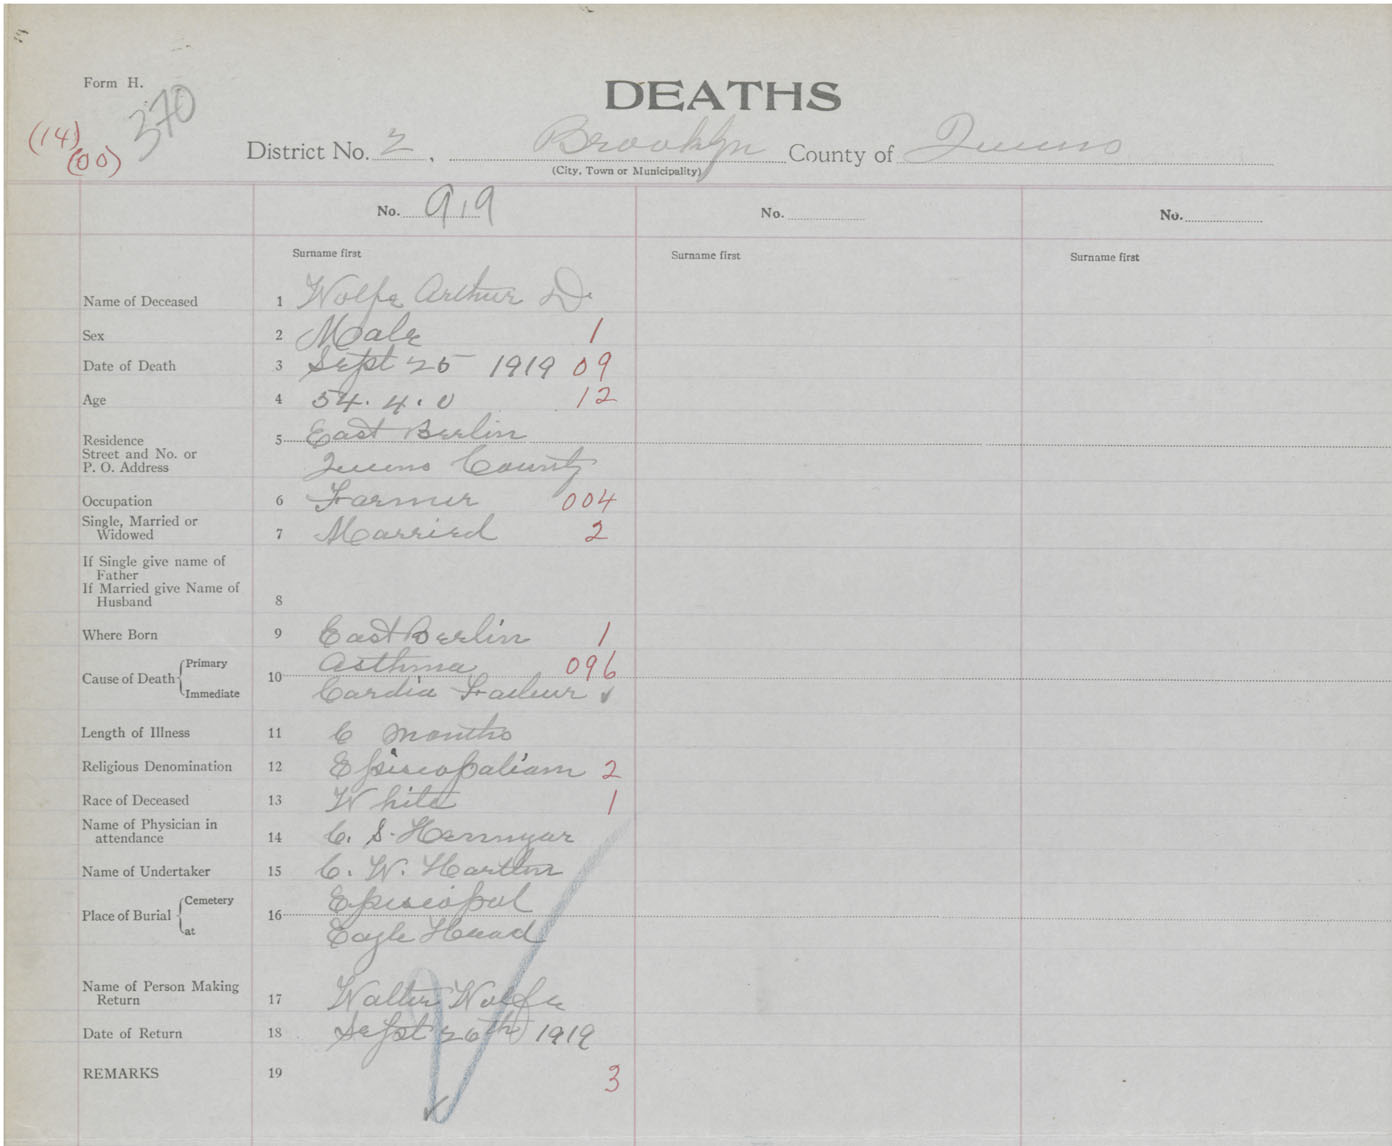 Form H.
370
DEATHS
(14)
(00)
District No. 2, Brooklyn County of Queens
(City, Town or Municipality)
No. 919 No. No.
Surname first Surname first Surname first
Name of Deceased 1 Wolfe Arthur D.
Sex 2 Male 1
Date of Death 3 Sept 25 1919 09
Age 4 54.4.0 12
Residence 5 East Berlin
Street and No. or
P. O. Address Queens County
Occupation 6 Farmer 004
Single, Married or
Widowed 7 Married 2
If Single give name of
Father
If Married give Name of
Husband 8
Where Born 9 East Berlin 1
Cause of Death Primary Asthma 096
10
Immediate Cardia Faeluer
Length of Illness 11 6 months
Religious Denomination 12 Episcopaliam 2
Race of Deceased 13 White 1
Name of Physician in
attendance 14 C. S. Hennigar
Name of Undertaker 15 C. W.
Place of Burial Cemetery Episcopal
16
at Eagle Head
Name of Person Making
Return 17 Walter Wolfe
Date of Return 18 Sept 26th 1919
REMARKS 19 3